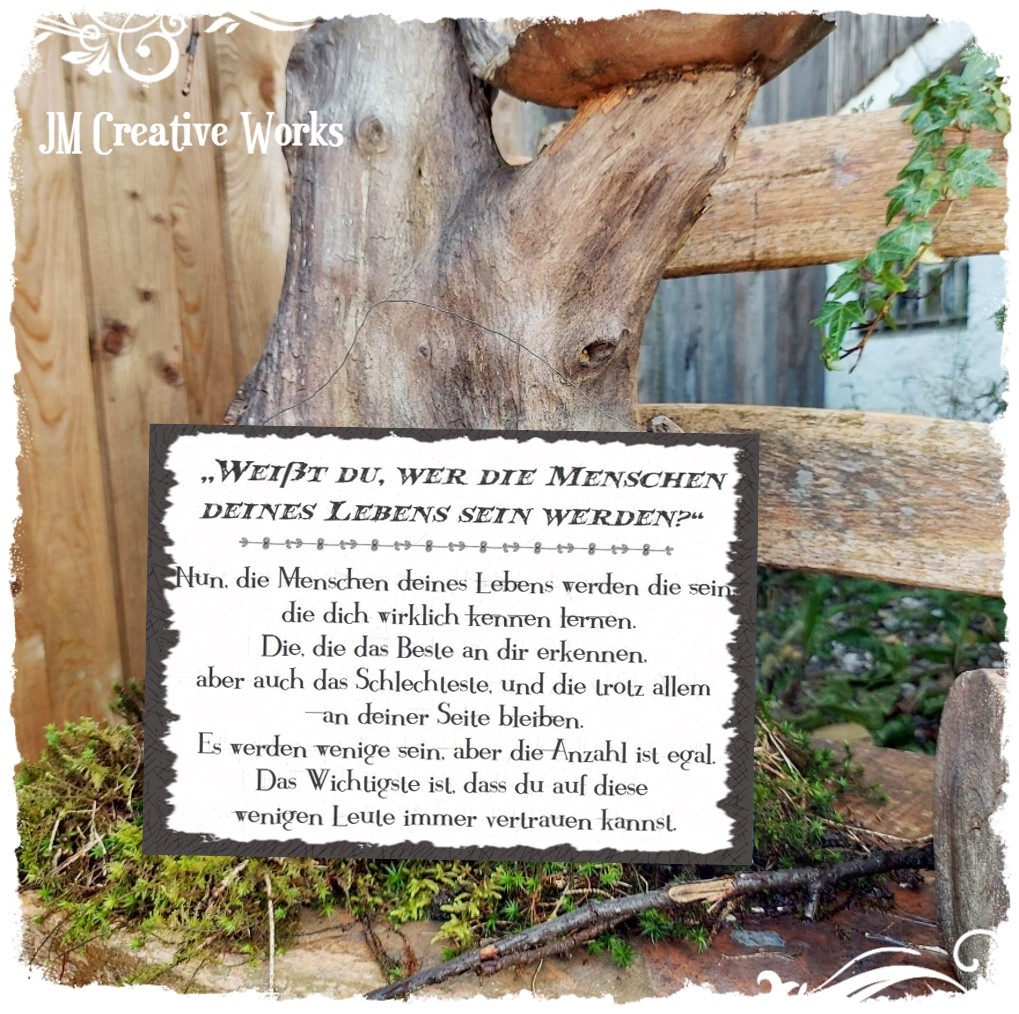 JM Creative Works
„Weißt du, wer die Menschen
deines Lebens sein werden?“
Nun, die Menschen deines Lebens werden die sein,
die dich wirklich kennen lernen.
Die, die das Beste an dir erkennen,
aber auch das Schlechteste, und die trotz allem
an deiner Seite bleiben.
Es werden wenige sein, aber die Anzahl ist egal.
Das Wichtigste ist, dass du auf diese
wenigen Leute immer vertrauen kannst.